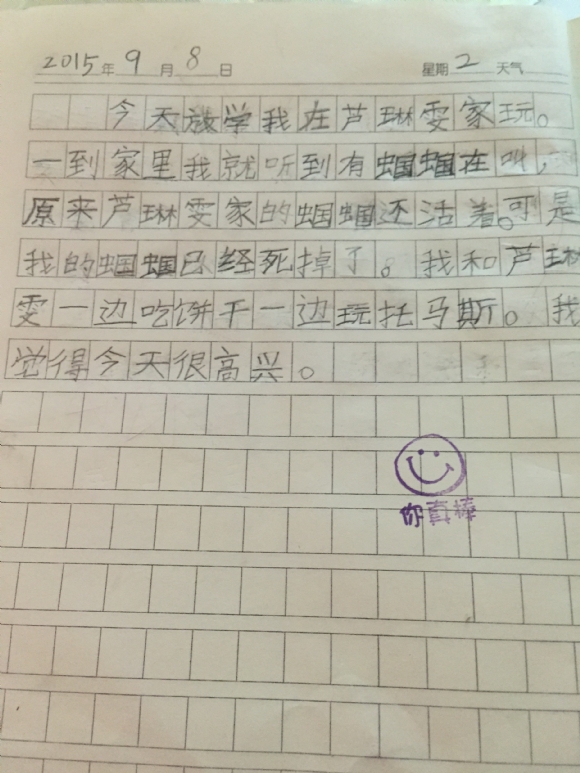 2015年9月8日 星期2 天气
今天放学我在芦琳雯家玩。
一到家里我就听到有蝈蝈在叫，
原来芦琳雯家的蝈蝈还活着。可是
我的蝈蝈已经死掉了。我和芦琳
雯一边吃饼干一边玩托马斯。我
觉得今天很高兴。
你真棒